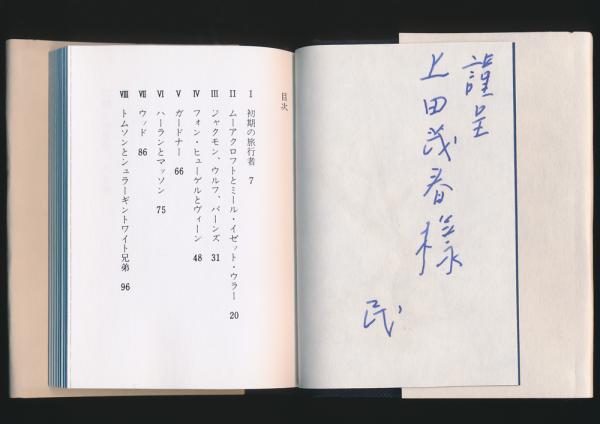 謹呈
上田茂春様
目次
I 初期の旅行者 7
II ムーアクロフトとミール・イゼット・ウラー 20
III ジャクモン、ウルフ、バーンズ 31
IV フォン・ヒューゲルとヴィーン 48
V ガードナー 66
VI ハーランとマッソン 75
VII ウッド 86
VIII トムソンとシュラーギントワイト兄弟 96